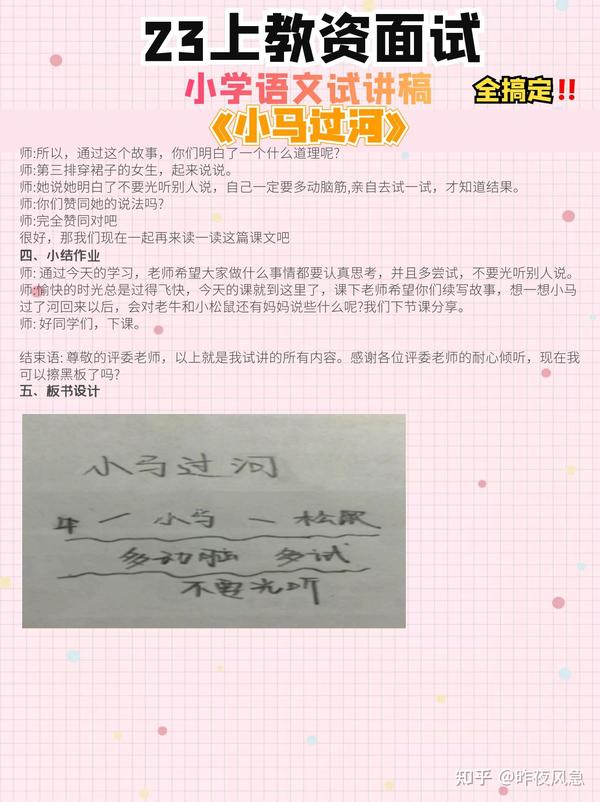 23上教资面试
小学语文试讲稿 全搞定!!
《小马过河》
师:所以，通过这个故事，你们明白了一个什么道理呢?
师:第三排穿裙子的女生，起来说说。
师:她说她明白了不要光听别人说，自己一定要多动脑筋,亲自去试一试，才知道结果。
师:你们赞同她的说法吗?
师:完全赞同对吧
很好，那我们现在一起再来读一读这篇课文吧
四、小结作业
师: 通过今天的学习，老师希望大家做什么事情都要认真思考，并且多尝试，不要光听别人说。
师:愉快的时光总是过得飞快，今天的课就到这里了，课下老师希望你们续写故事，想一想小马
过了河回来以后，会对老牛和小松鼠还有妈妈说些什么呢?我们下节课分享。
师: 好同学们，下课。
结束语: 尊敬的评委老师，以上就是我试讲的所有内容。感谢各位评委老师的耐心倾听，现在我
可以擦黑板了吗?
五、板书设计
小马过河
牛 — 小马 — 松鼠
多动脑 多试
不要光听
知乎 @昨夜风急